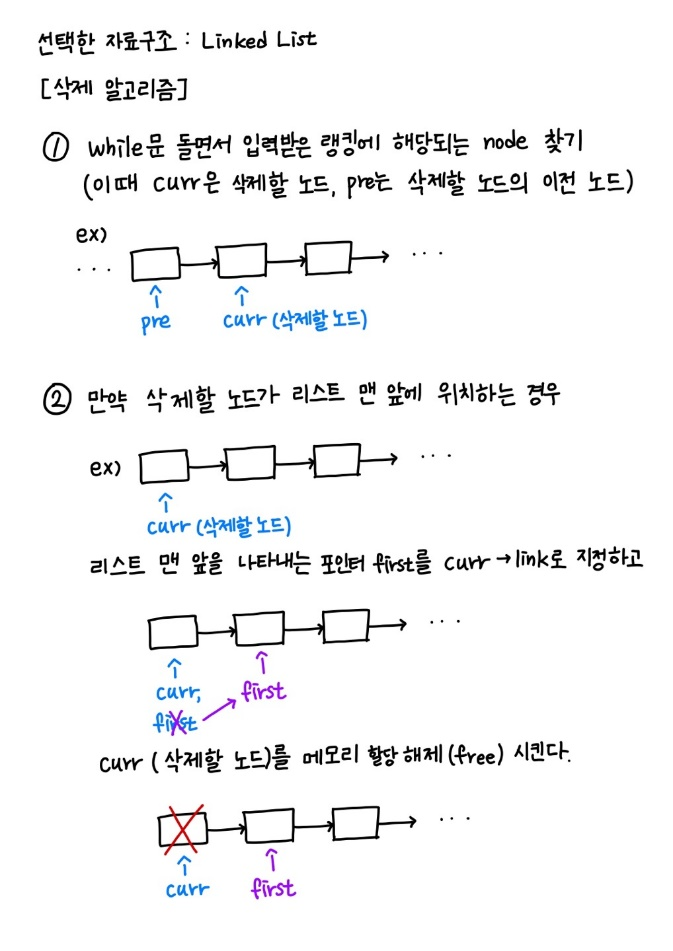 선택한 자료구조 : Linked List
[삭제 알고리즘]
① while문 돌면서 입력받은 랭킹에 해당되는 node 찾기
(이때 curr은 삭제할 노드, pre는 삭제할 노드의 이전 노드)
ex)
... ...
pre curr (삭제할 노드)
② 만약 삭제할 노드가 리스트 맨 앞에 위치하는 경우
ex) ...
curr (삭제할 노드)
리스트 맨 앞을 나타내는 포인터 first를 curr→link로 지정하고
...
curr, first
first
curr (삭제할 노드)를 메모리 할당 해제(free) 시킨다.
...
curr first